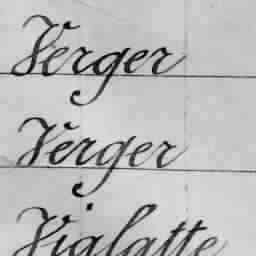 Verger
Verger
Vialatte